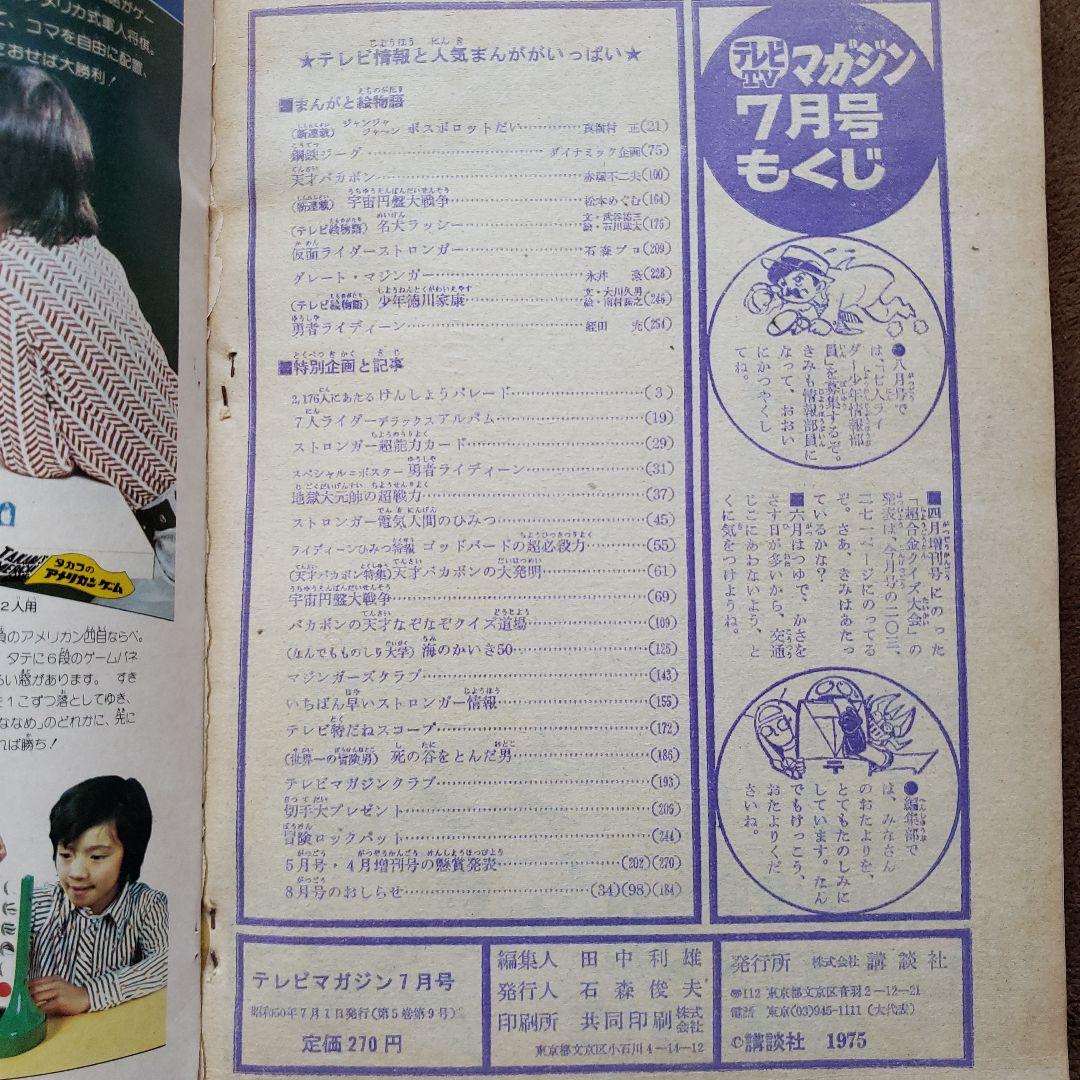 メリカ式軍人将棋。
、コマを自由に配置、
おせば大勝利！
タカラの
アメリカンゲーム
2人用
のアメリカン四目ならべ。
タテに6段のゲームパネ
があります。 すき
1こずつ落としてゆき、
ななめ」のどれかに、先に
れば勝ち！
テレビ
TV
マガジン
7月号
もくじ
★テレビ情報と人気まんががいっぱい★
■まんがと絵物語
(新連載) ジャンジャジャ〜ン ボスボロットだい…………真樹村 正(21)
鋼鉄ジーグ…………ダイナミック企画(75)
天才バカボン…………赤塚不二夫(100)
(新連載) 宇宙円盤大戦争…………松本めぐむ(164)
(テレビ絵物語) 名犬ラッシー…………(175)
仮面ライダーストロンガー…………石森プロ(209)
グレート・マジンガー…………永井 豪(228)
(テレビ絵物語) 少年徳川家康…………文・大川久男 (246)
勇者ライディーン…………(254)
■特別企画と記事
2,176人にあたる けんしょうパレード…………(3)
7人ライダーデラックスアルバム…………(19)
ストロンガー超能力カード…………(29)
スペシャル=ポスター 勇者ライディーン…………(31)
地獄大元帥の超戦力…………(37)
ストロンガー電気人間のひみつ…………(45)
ライディーンひみつ特報 ゴッドバードの超必殺力…………(55)
(天才バカボン特集) 天才バカボンの大発明…………(61)
宇宙円盤大戦争…………(69)
バカボンの天才なぞなぞクイズ道場…………(109)
(なんでもものしり大学) 海のかいき50…………(125)
マジンガーズクラブ…………(143)
いちばん早いストロンガー情報…………(155)
テレビ特だねスコープ…………(172)
(世界一の冒険男) 死の谷をとんだ男…………(186)
テレビマガジンクラブ…………(193)
切手大プレゼント…………(206)
冒険ロックバット…………(244)
5月号・4月増刊号の懸賞発表…………(202)(270)
8月号のおしらせ…………(34)(98)(184)
●八月号で
は、「七人ライ
ダー少年情報部
員」を募集するぞ。
きみも情報部員に
なって、おおい
にかつやくし
てね。
■四月増刊号にのった
「超合金クイズ大会」の
発表は、今月号の二〇三、
二七一ページにのってる
ぞ。さあ、きみはあたっ
ているかな？
■六月はつゆで、かさを
さす日が多いから、交通
じこにあわないよう、と
くに気をつけようね。
●編集部で
は、みなさん
のおたよりを、
とてもたのしみに
しています。なん
でもけっこう、
おたよりくだ
さいね。
テレビマガジン7月号
昭和50年7月1日発行(第5巻第9号)
定価270円
編集人 田中利雄
発行人 石森俊夫
印刷所 共同印刷株式会社
東京都文京区小石川4-14-12
発行所 株式会社 講談社
〠112 東京都文京区音羽2-12-21
電話 東京(03)945-1111(大代表)
©講談社 1975